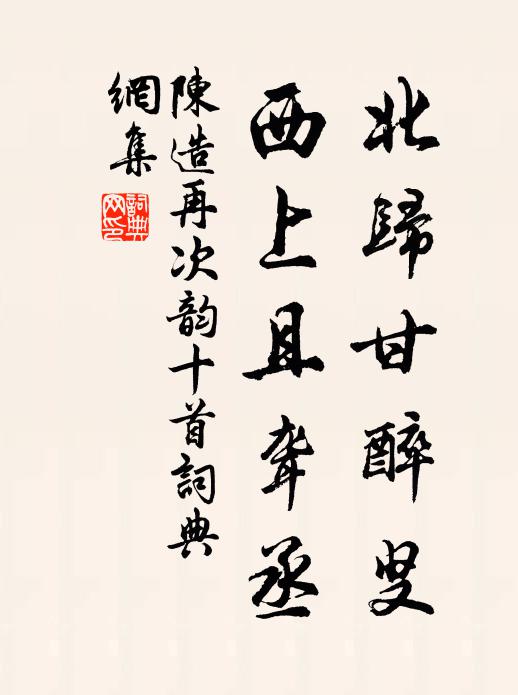 北歸甘醉叟
西上且聋丞
陳造再次韵十首詞典
網集
詞典
网印